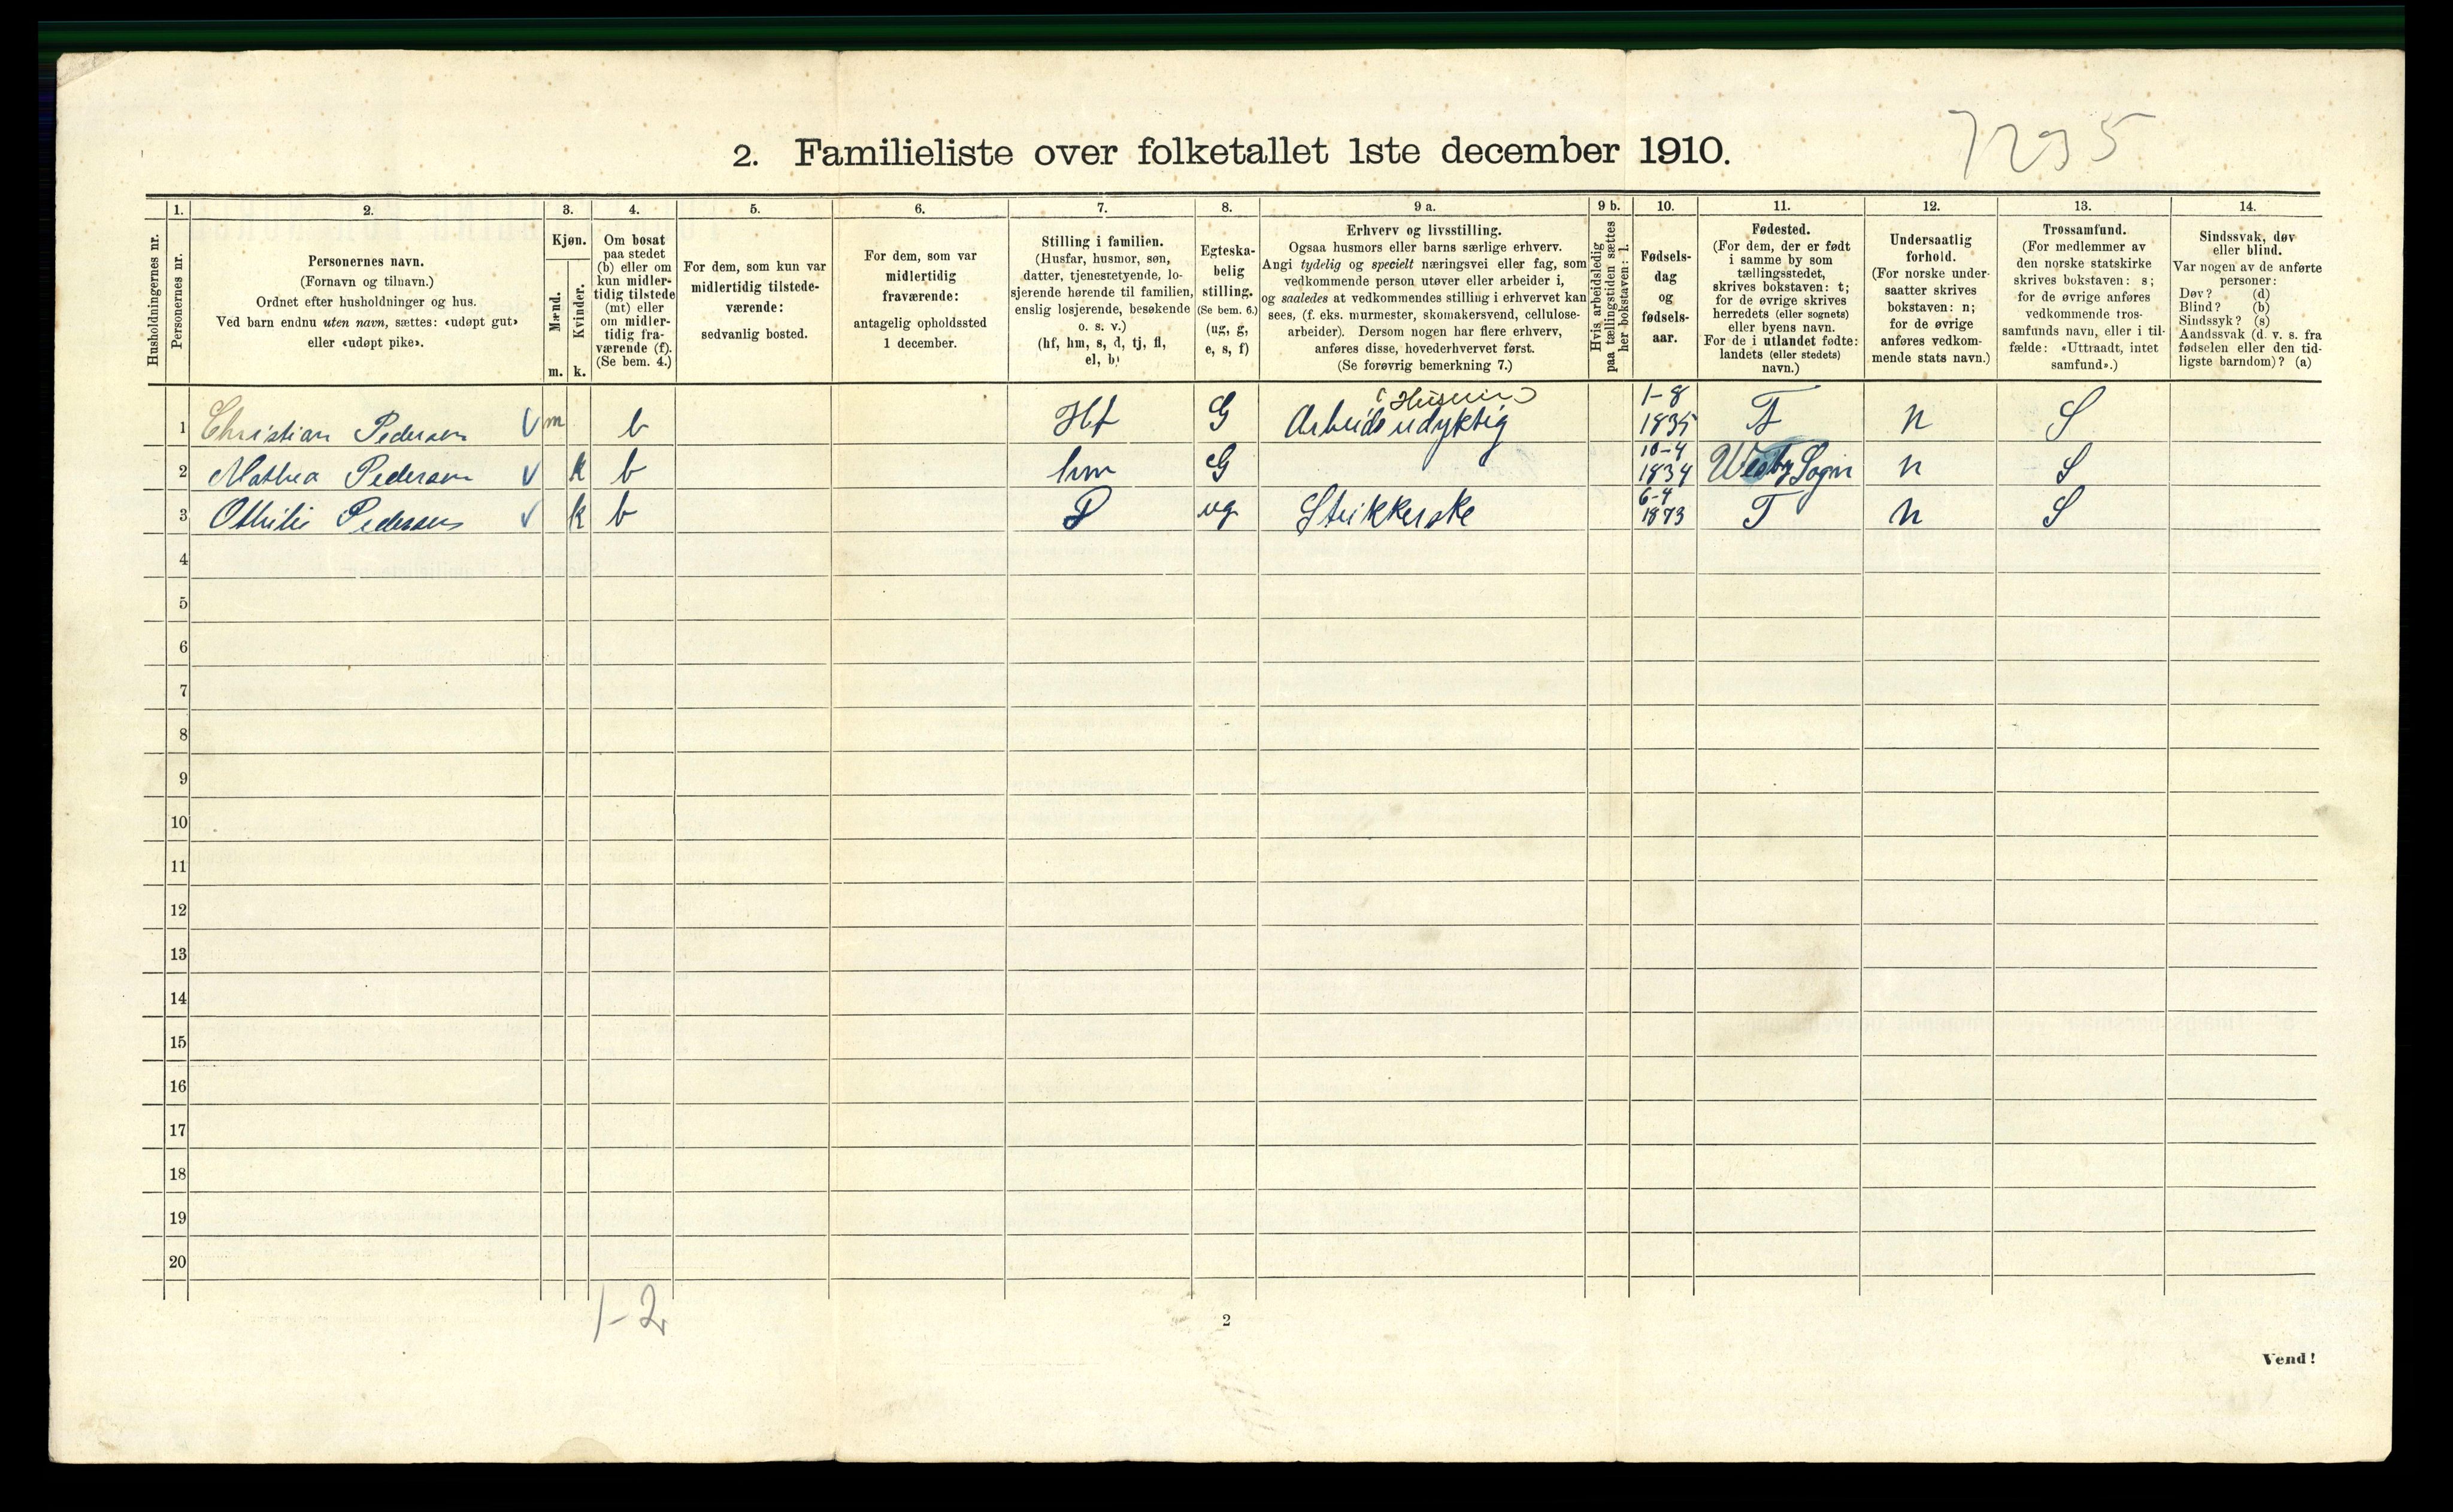 7295
2. Familieliste over folketallet 1ste december 1910.
Husholdningernes nr.
1.
Personernes nr.
2.
Personernes navn.
(Fornavn og tilnavn.)
Ordnet efter husholdninger og hus.
Ved barn endnu uten navn, sættes: «udøpt gut»
eller «udøpt pike».
3.
Kjøn.
Mænd.
Kvinder.
m. k.
4.
Om bosat
paa stedet
(b) eller om
kun midler-
tidig tilstede
(mt) eller
om midler-
tidig fra-
værende (f).
(Se bem. 4.)
5.
For dem, som kun var
midlertidig tilstede-
værende:
sedvanlig bosted.
6.
For dem, som var
midlertidig
fraværende:
antagelig opholdssted
1 december.
7.
Stilling i familien.
(Husfar, husmor, søn,
datter, tjenestetyende, lo-
sjerende hørende til familien,
enslig losjerende, besøkende
o. s. v.)
(hf, hm, s, d, tj, fl,
el, b)
8.
Egteska-
belig
stilling.
(Se bem. 6.)
(ug, g,
e, s, f)
9 a.
Erhverv og livsstilling.
Ogsaa husmors eller barns særlige erhverv.
Angi tydelig og specielt næringsvei eller fag, som
vedkommende person utøver eller arbeider i,
og saaledes at vedkommendes stilling i erhvervet kan
sees, (f. eks. murmester, skomakersvend, cellulose-
arbeider). Dersom nogen har flere erhverv,
anføres disse, hovederhvervet først.
(Se forøvrig bemerkning 7.)
9 b.
Hvis arbeidsledig
paa tællingstiden sættes
her bokstaven: l.
10.
Fødsels-
dag
og
fødsels-
aar.
11.
Fødested.
(For dem, der er født
i samme by som
tællingsstedet,
skrives bokstaven: t;
for de øvrige skrives
herredets (eller sognets)
eller byens navn.
For de i utlandet fødte:
landets (eller stedets)
navn.)
12.
Undersaatlig
forhold.
(For norske under-
saatter skrives
bokstaven: n;
for de øvrige
anføres vedkom-
mende stats navn.)
13.
Trossamfund.
(For medlemmer av
den norske statskirke
skrives bokstaven: s;
for de øvrige anføres
vedkommende tros-
samfunds navn, eller i til-
fælde: «Uttraadt, intet
samfund».)
14.
Sindssvak, døv
eller blind.
Var nogen av de anførte
personer:
Døv? (d)
Blind? (b)
Sindssyk? (s)
Aandssvak (d. v. s. fra
fødselen eller den tid-
ligste barndom)? (a)
1 Christian Pedersen V m b Hf G Arbeidsudyktig 1-8 1835 T n S
2 Mathea Pedersen V k b hm G 10-4 1834 Wesby Sogn n S
3 Othilie Pedersen V k b D ug Strikkerske 6-4 1873 T n S
4
5
6
7
8
9
10
11
12
13
14
15
16
17
18
19
20
1-2
2
Vend!